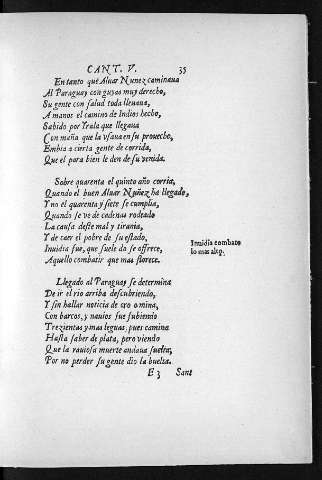 CANT. V. 35
En tanto què Aluar Nunez caminaua
Al Paraguay con guyas muy derecho,
Su gente con salud toda lleuaua,
A manos el camino de Indios hecho,
Sabido por Yrala que llegaua
Con maña que la vsaua en su prouecho,
Embia a cierta gente de corrida,
Que el para bien le den de su venida.
Sobre quarenta el quinto año corria,
Quando el buen Aluar Nuñez ha llegado,
Y no el quarenta y siete se cumplia,
Quando se ve de cadenas rodeado
La causa deste mal y tirania,
Y de caer el pobre de su estado,
Inuidia fue, que suele do se offrece,
Aquello combatir que mas florece.
Inuidia combate
lo mas alto.
Llegado al Paraguay se determina
De ir el rio arriba descubriendo,
Y sin hallar noticia de oro o mina,
Con barcos, y nauios fue subiendo
Trezientas y mas leguas, pues camina
Hasta saber de plata, pero viendo
Que la rauiosa muerte andaua suelta,
Por no perder su gente dio la buelta.
E 3 Sant